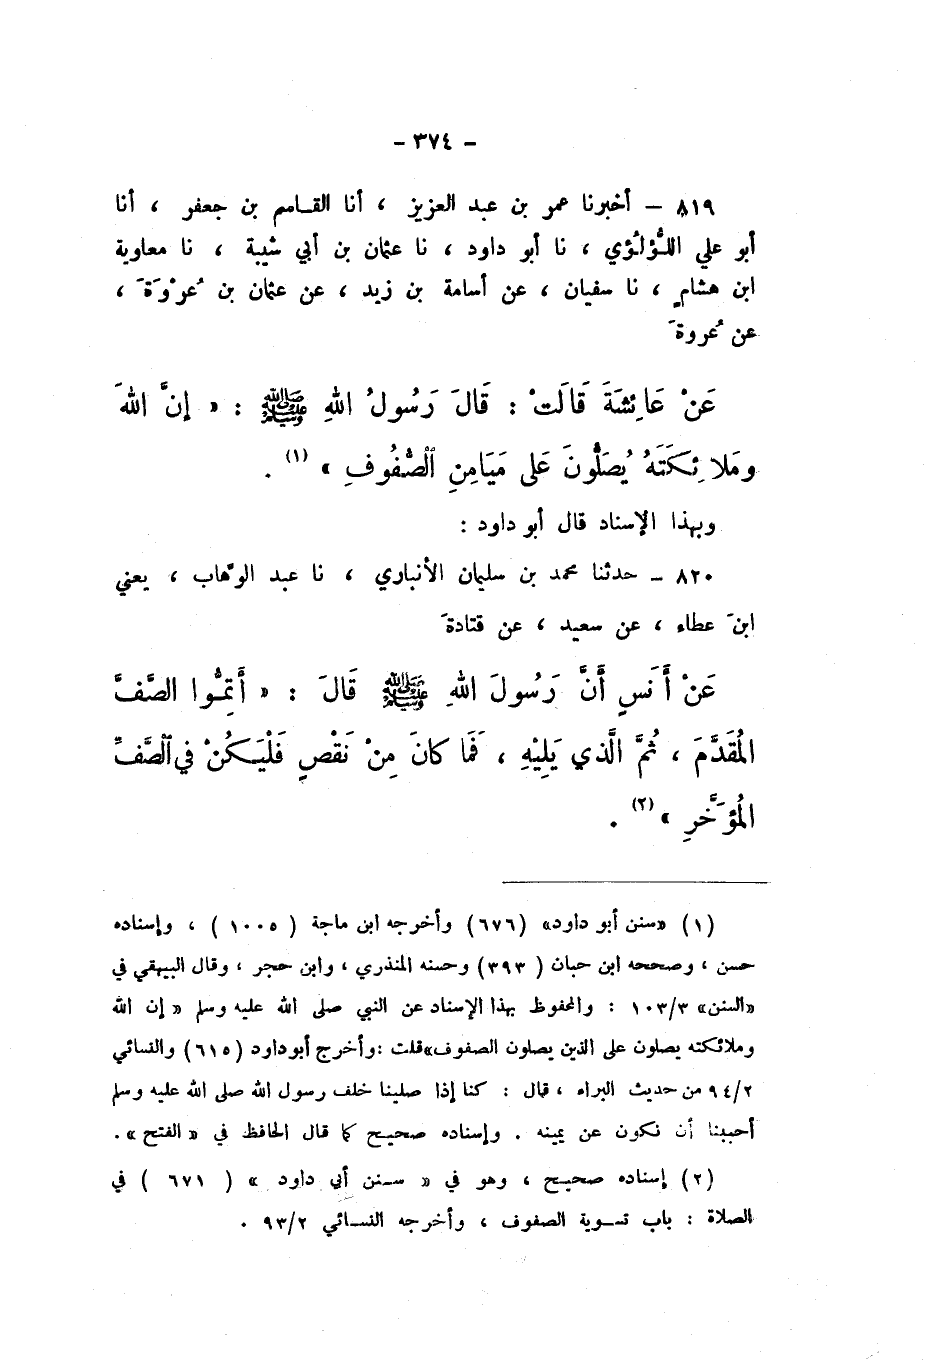 - ٣٧٤ -
٨١٩ – أخبرنا عمر بن عبد العزيز ، أنا القاسم بن جعفر ، أنا
أبو علي اللُّؤلُؤي ، نا أبو داود ، نا عثمان بن أبي شيبة ، نا معاوية
ابن هشامٍ ، نا سفيان ، عن أسامة بن زيد ، عن عثمان بن عُرْوَةَ ،
عن عُروةَ
عَنْ عَائِشَةَ قَالَتْ : قَالَ رَسُولُ اللهِ ﷺ : « إنَّ اللهَ
وَمَلائِكَتَهُ يُصَلُّونَ عَلى مَيَامِنِ ٱلصُّفُوفِ » (١) .
وبهذا الإسناد قال أبو داود :
٨٢٠ – حدثنا محمد بن سليمان الأنباري ، نا عبد الوهَّاب ، يعني
ابنَ عطاء ، عن سعيد ، عن قتادةَ
عَنْ أَنَسٍ أَنَّ رَسُولَ اللهِ ﷺ قَالَ : « أَتِمُّوا الصَّفَّ
المُقَدَّمَ ، ثُمَّ الَّذي يَلِيْهِ ، فَمَا كانَ مِنْ نَقْصٍ فَلْيَكُنْ في ٱلصَّفِّ
المُؤَخَّرِ » (٢) .
(١) «سنن أبو داود» (٦٧٦) وأخرجه ابن ماجة ( ١٠٠٥ ) ، وإسناده
حسن ، وصححه ابن حبان ( ٣٩٣) وحسنه المنذري ، وابن حجر ، وقال البيهقي في
«السنن» ١٠٣/٣ : والمحفوظ بهذا الإسناد عن النبي صلى الله عليه وسلم « إن الله
وملائكته يصلون على الذين يصلون الصفوف»قلت :وأخرج أبوداود (٦١٥) والنسائي
٩٤/٢ من حديث البراء ، قال : كنا إذا صلينا خلف رسول الله صلى الله عليه وسلم
أحببنا أن نكون عن يمينه . وإسناده صحيح كما قال الحافظ في « الفتح » .
(٢) إسناده صحيح ، وهو في « سنن أبي داود » ( ٦٧١ ) في
الصلاة : باب تسوية الصفوف ، وأخرجه النسائي ٩٣/٢ .